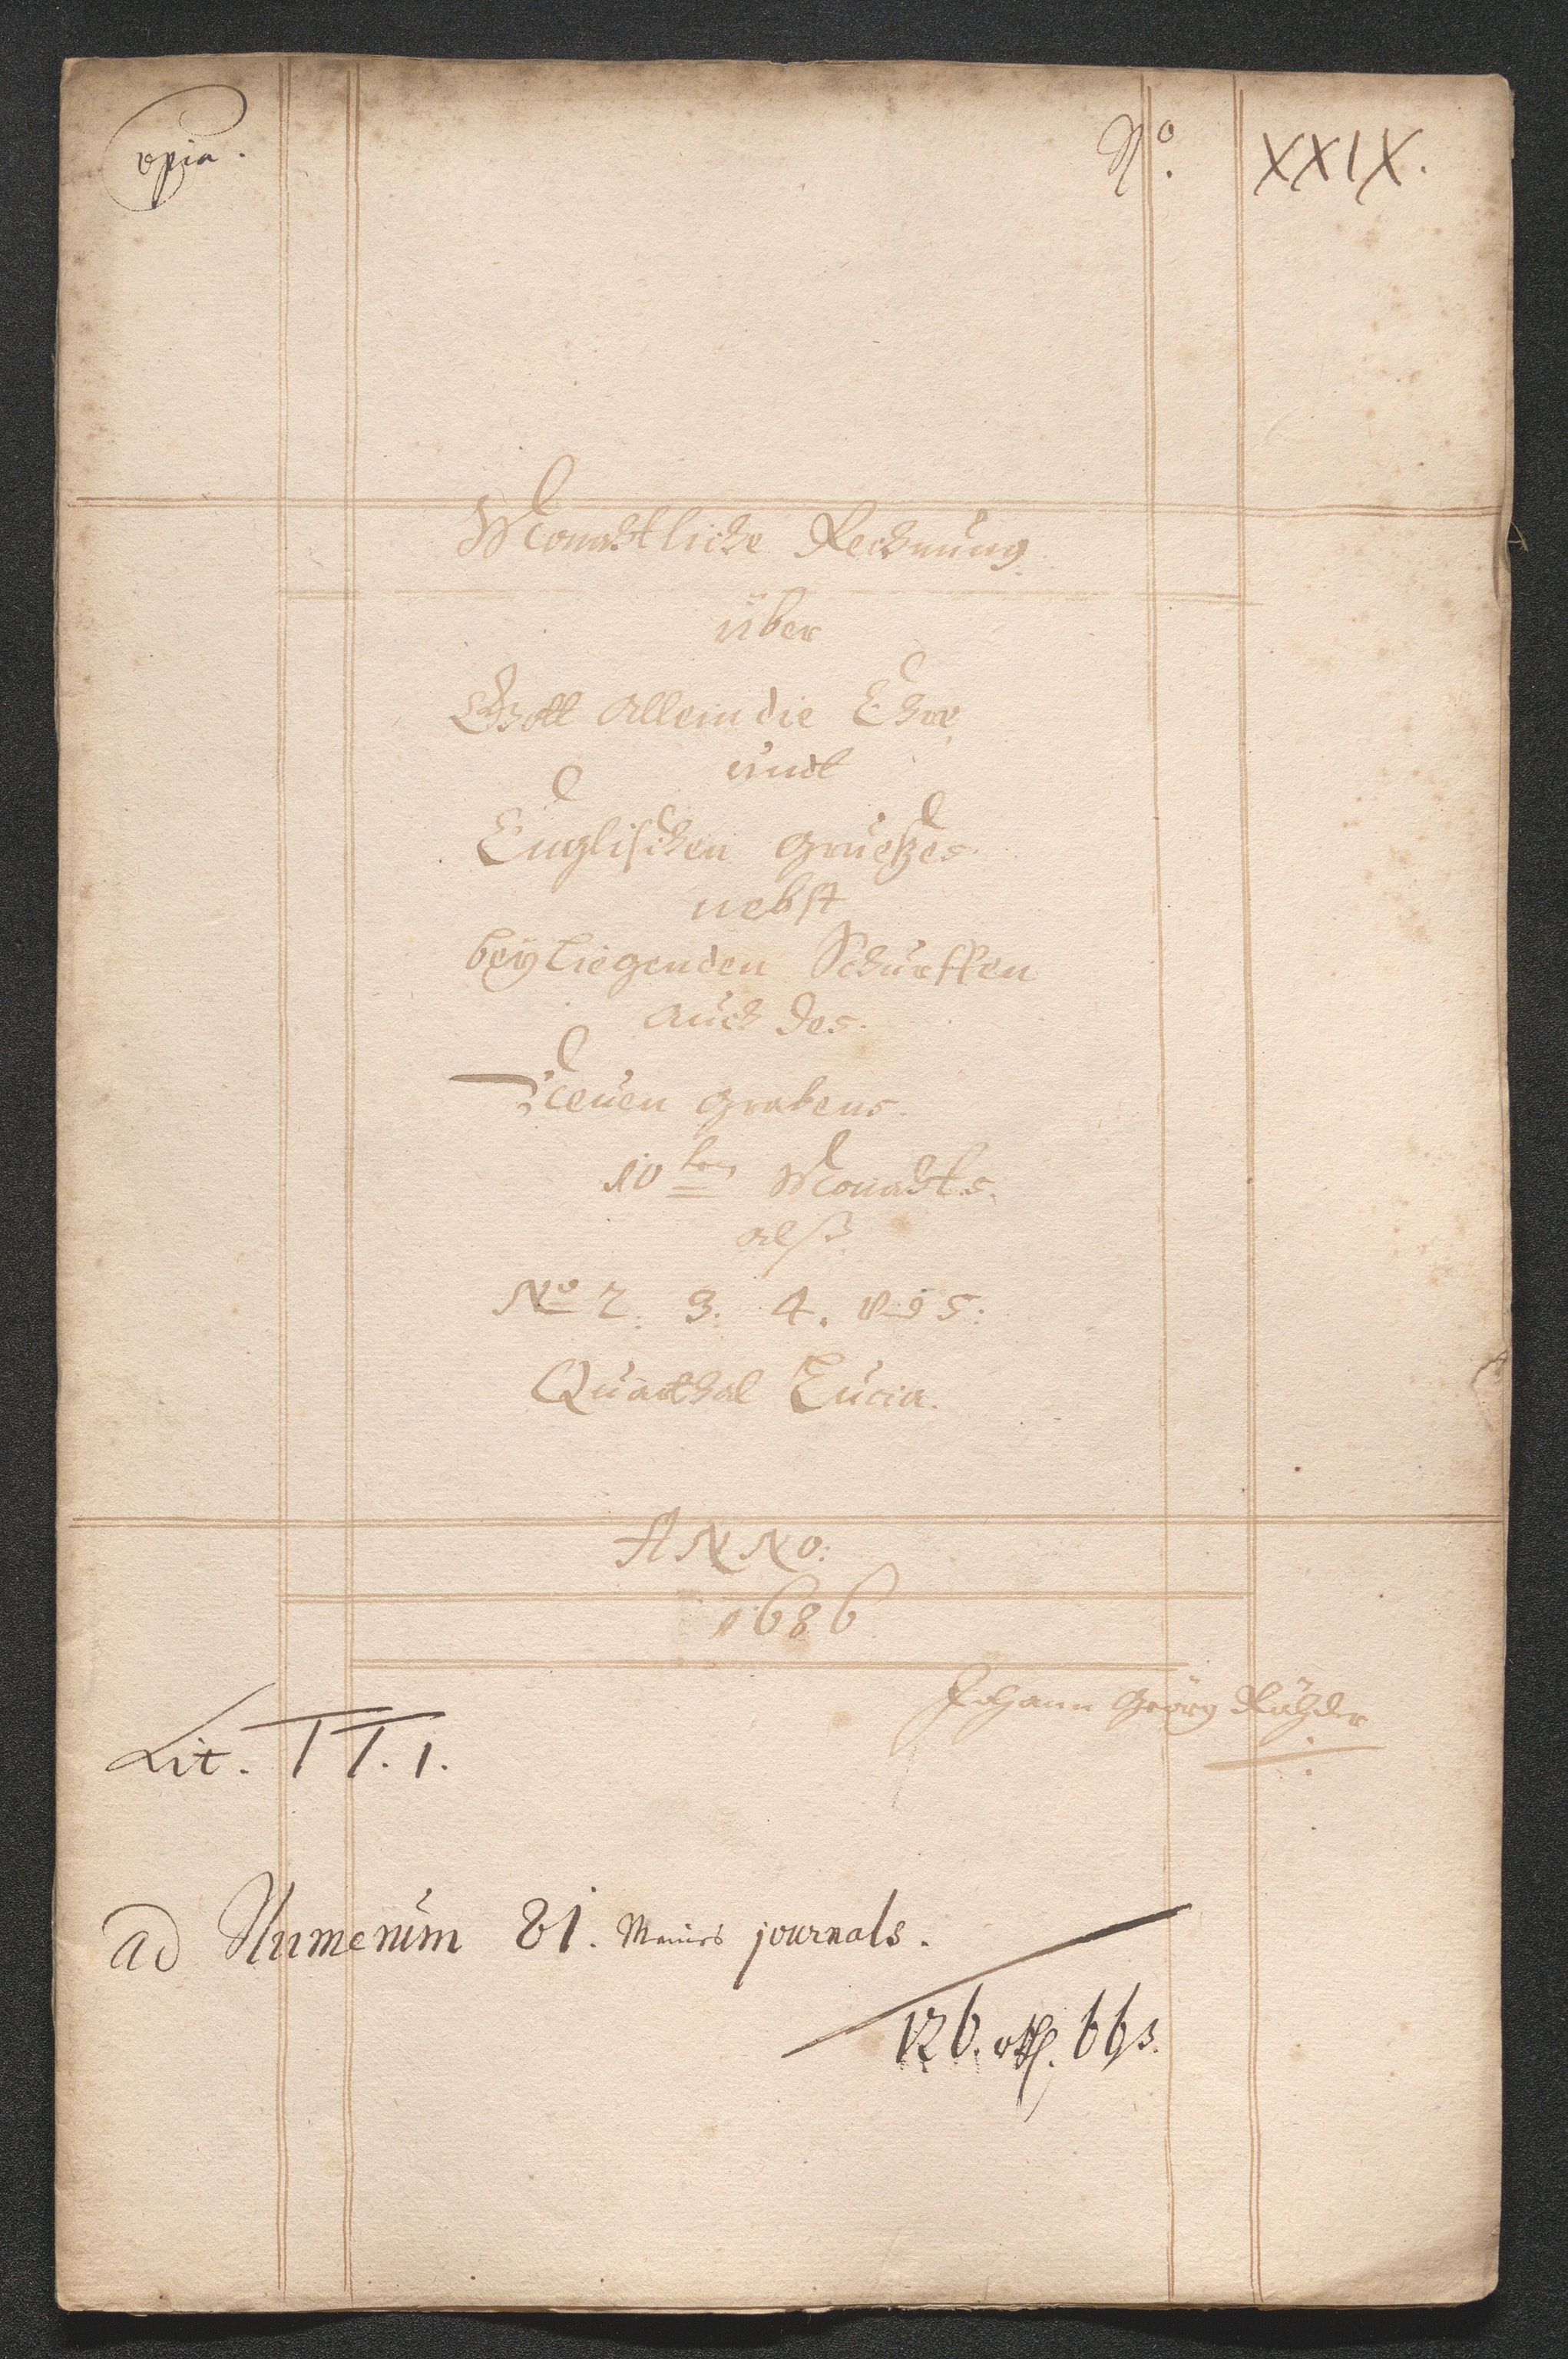 Copia.
No. XXIX.
Monahtliche Rechnung
über
Gott allein die Ehre
undt
Englischen Grueßes
nebst
beyliegenden Schürffen
auch des
Neuen Grabens.
10ten Monahts.
alß
No 2. 3. 4. und 5.
Quarthal Lucia.
ANNO:
1686
Johann Geörg
Lit. TT. 1.
ad Numerum 81. Meines journals.
126. rth. 6 gs.